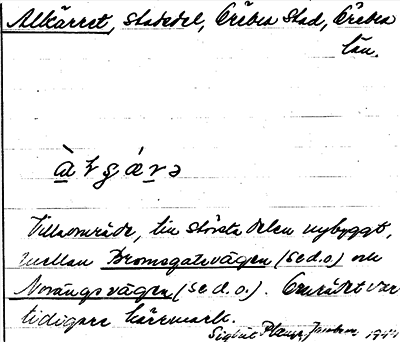 Alkärret, stadsdel, Örebro stad, Örebro
län.
Villaområde, till största delen nybyggt,
mellan Bromsgatsvägen (se d.o) och
Norängsvägen (se d.o.). Området var
tidigare kärrmark.
Sigurd